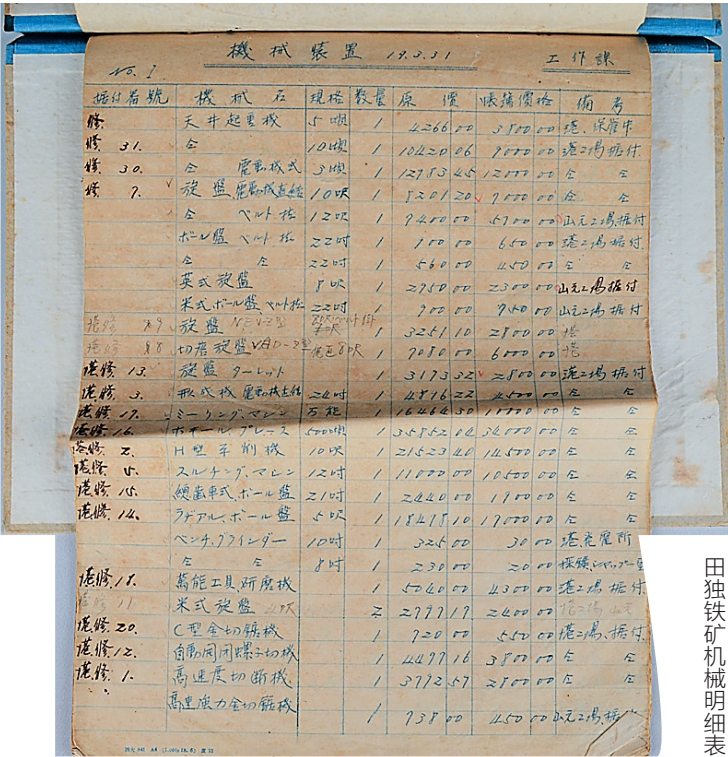 機械装置 19.3.31 工作課
No. 1
据付番號 機械名 規格 数量 原價 帳簿價格 備考
修 天井起重機 5噸 1 4266 00 3800 00 港、保管中
修 31. 仝 10噸 1 10420 06 9000 00 港工場据付
修 30. 仝 電動機式 3噸 1 12983 45 12000 00 仝 仝
修 7. 旋盤 電動機直結 10呎 1 8201 20 7000 00 仝 仝
仝 ベルト掛 12呎 1 9400 00 5900 00 山元工場据付
ボール盤 ベルト掛 22吋 1 900 00 650 00 港工場据付
仝 仝 22吋 1 560 00 450 00 仝 仝
英式旋盤 8呎 1 2950 00 2300 00 山元工場据付
米式ボール盤 ベルト掛 22吋 1 900 00 750 00 山元工場据付
港修 旋盤 1 3251 10 2800 00 港
港修 切磨旋盤 1 7080 00 6000 00 港
港修 13. 旋盤 ターレット 1 3193 32 2800 00 港工場据付
港修 3. 形式機 電動機直結 24吋 1 4816 22 4500 00 仝 仝
港修 17. ミーリング、マシン 万能 1 16464 30 10000 00 仝 仝
港修 16. ホヰール、プレース 500噸 1 35852 04 34000 00 仝 仝
港修 2. H型平削機 10呎 1 21523 40 14500 00 仝 仝
港修 5. スルチング、マシン 12吋 1 11000 00 10500 00 仝 仝
港修 15. 總歯車式、ボール盤 21吋 1 2440 00 1900 00 仝 仝
港修 14. ラヂアル、ボール盤 5呎 1 18498 10 17000 00 仝 仝
ベンチ、グラインダー 10吋 1 325 00 30 00 港、発電所
仝 仝 8吋 1 230 00 20 00
港修 18. 萬能工具研磨機 1 5040 00 4300 00 港工場据付
米式旋盤 2 2799 19 2400 00
港修 20. C型金切鋸機 1 720 00 550 00 港工場、据付
港修 12. 自動開閉螺子切機 1 4499 16 3800 00 仝 仝
港修 1. 高速度切断機 1 3992 57 2800 00 仝 仝
高速强力金切鋸機 1 738 00 450 00 山元工場据付
田独铁矿机械明细表